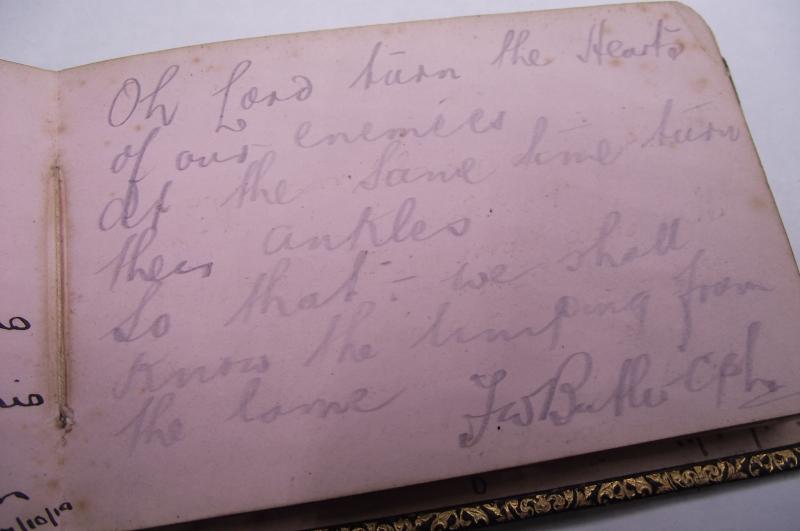 Oh Lord turn the Hearts
of our enemies
At the same time turn
their ankles
So that - we shall
know the limping from
the lame
FW Butler Cpl
1/10/19